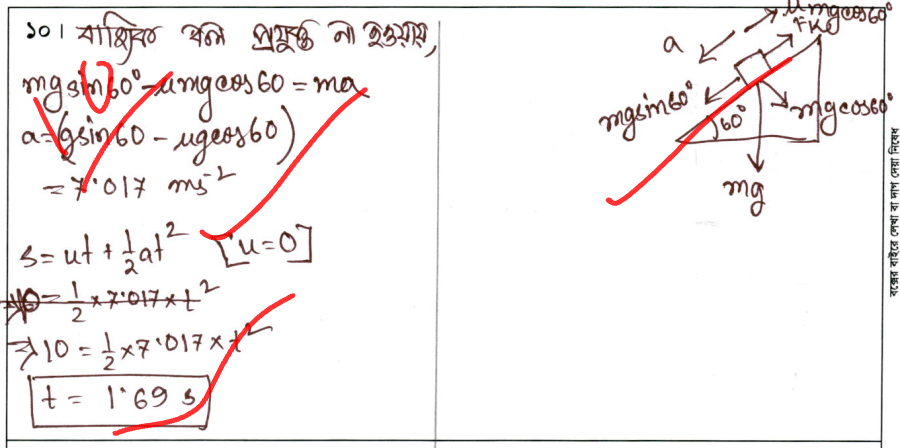 ১০। বাহ্যিক বল প্রযুক্ত না হওয়ায়,
mgsin60° - μmgcos60 = ma
a = (gsin60 - μgcos60)
= 7.017 ms⁻²
s = ut + ½at² [u=0]
⇒ 10 = ½ × 7.017 × t²
⇒ 10 = ½ × 7.017 × t²
t = 1.69 s
μmgcos60°
Fk
a
mgsin60°
60°
mgcos60°
mg
বক্সের বাইরে লেখা বা দাগ দেয়া নিষেধ